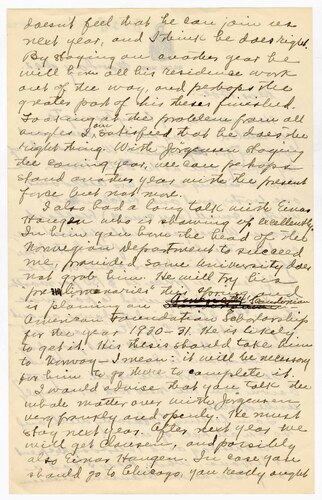 doesn't feel that he can join us
next year, and I think he does right.
By staying on another year he
will have all his residence work
out of the way, and perhaps the
greater part of his thesis finished.
Looking at the problem from all
angles I satisfied that he does the
right thing. With Jorgensen staying
the coming year, we can perhaps
stand another year with the present
force but not more.
I also had a long talk with Einar
Haugen who is showing up excellently.
In him you have the head of the
Norwegian Department to succeed
me, provided some University does
not grab him. He will try his
preliminaries this spring and
is planning on Scandinavian
American Foundation Scholarship
for the year 1930-31. He is likely
to get it. His thesis should take him
to Norway – I mean: it will be necessary
for him to go there to complete it.
I would advise that you talk the
whole matter over with Jorgensen
very frankly and openly. He must
stay next year. After next year we
will get Clausen, and possibly
also Einar Haugen. In case you
should go to Chicago, you really ought